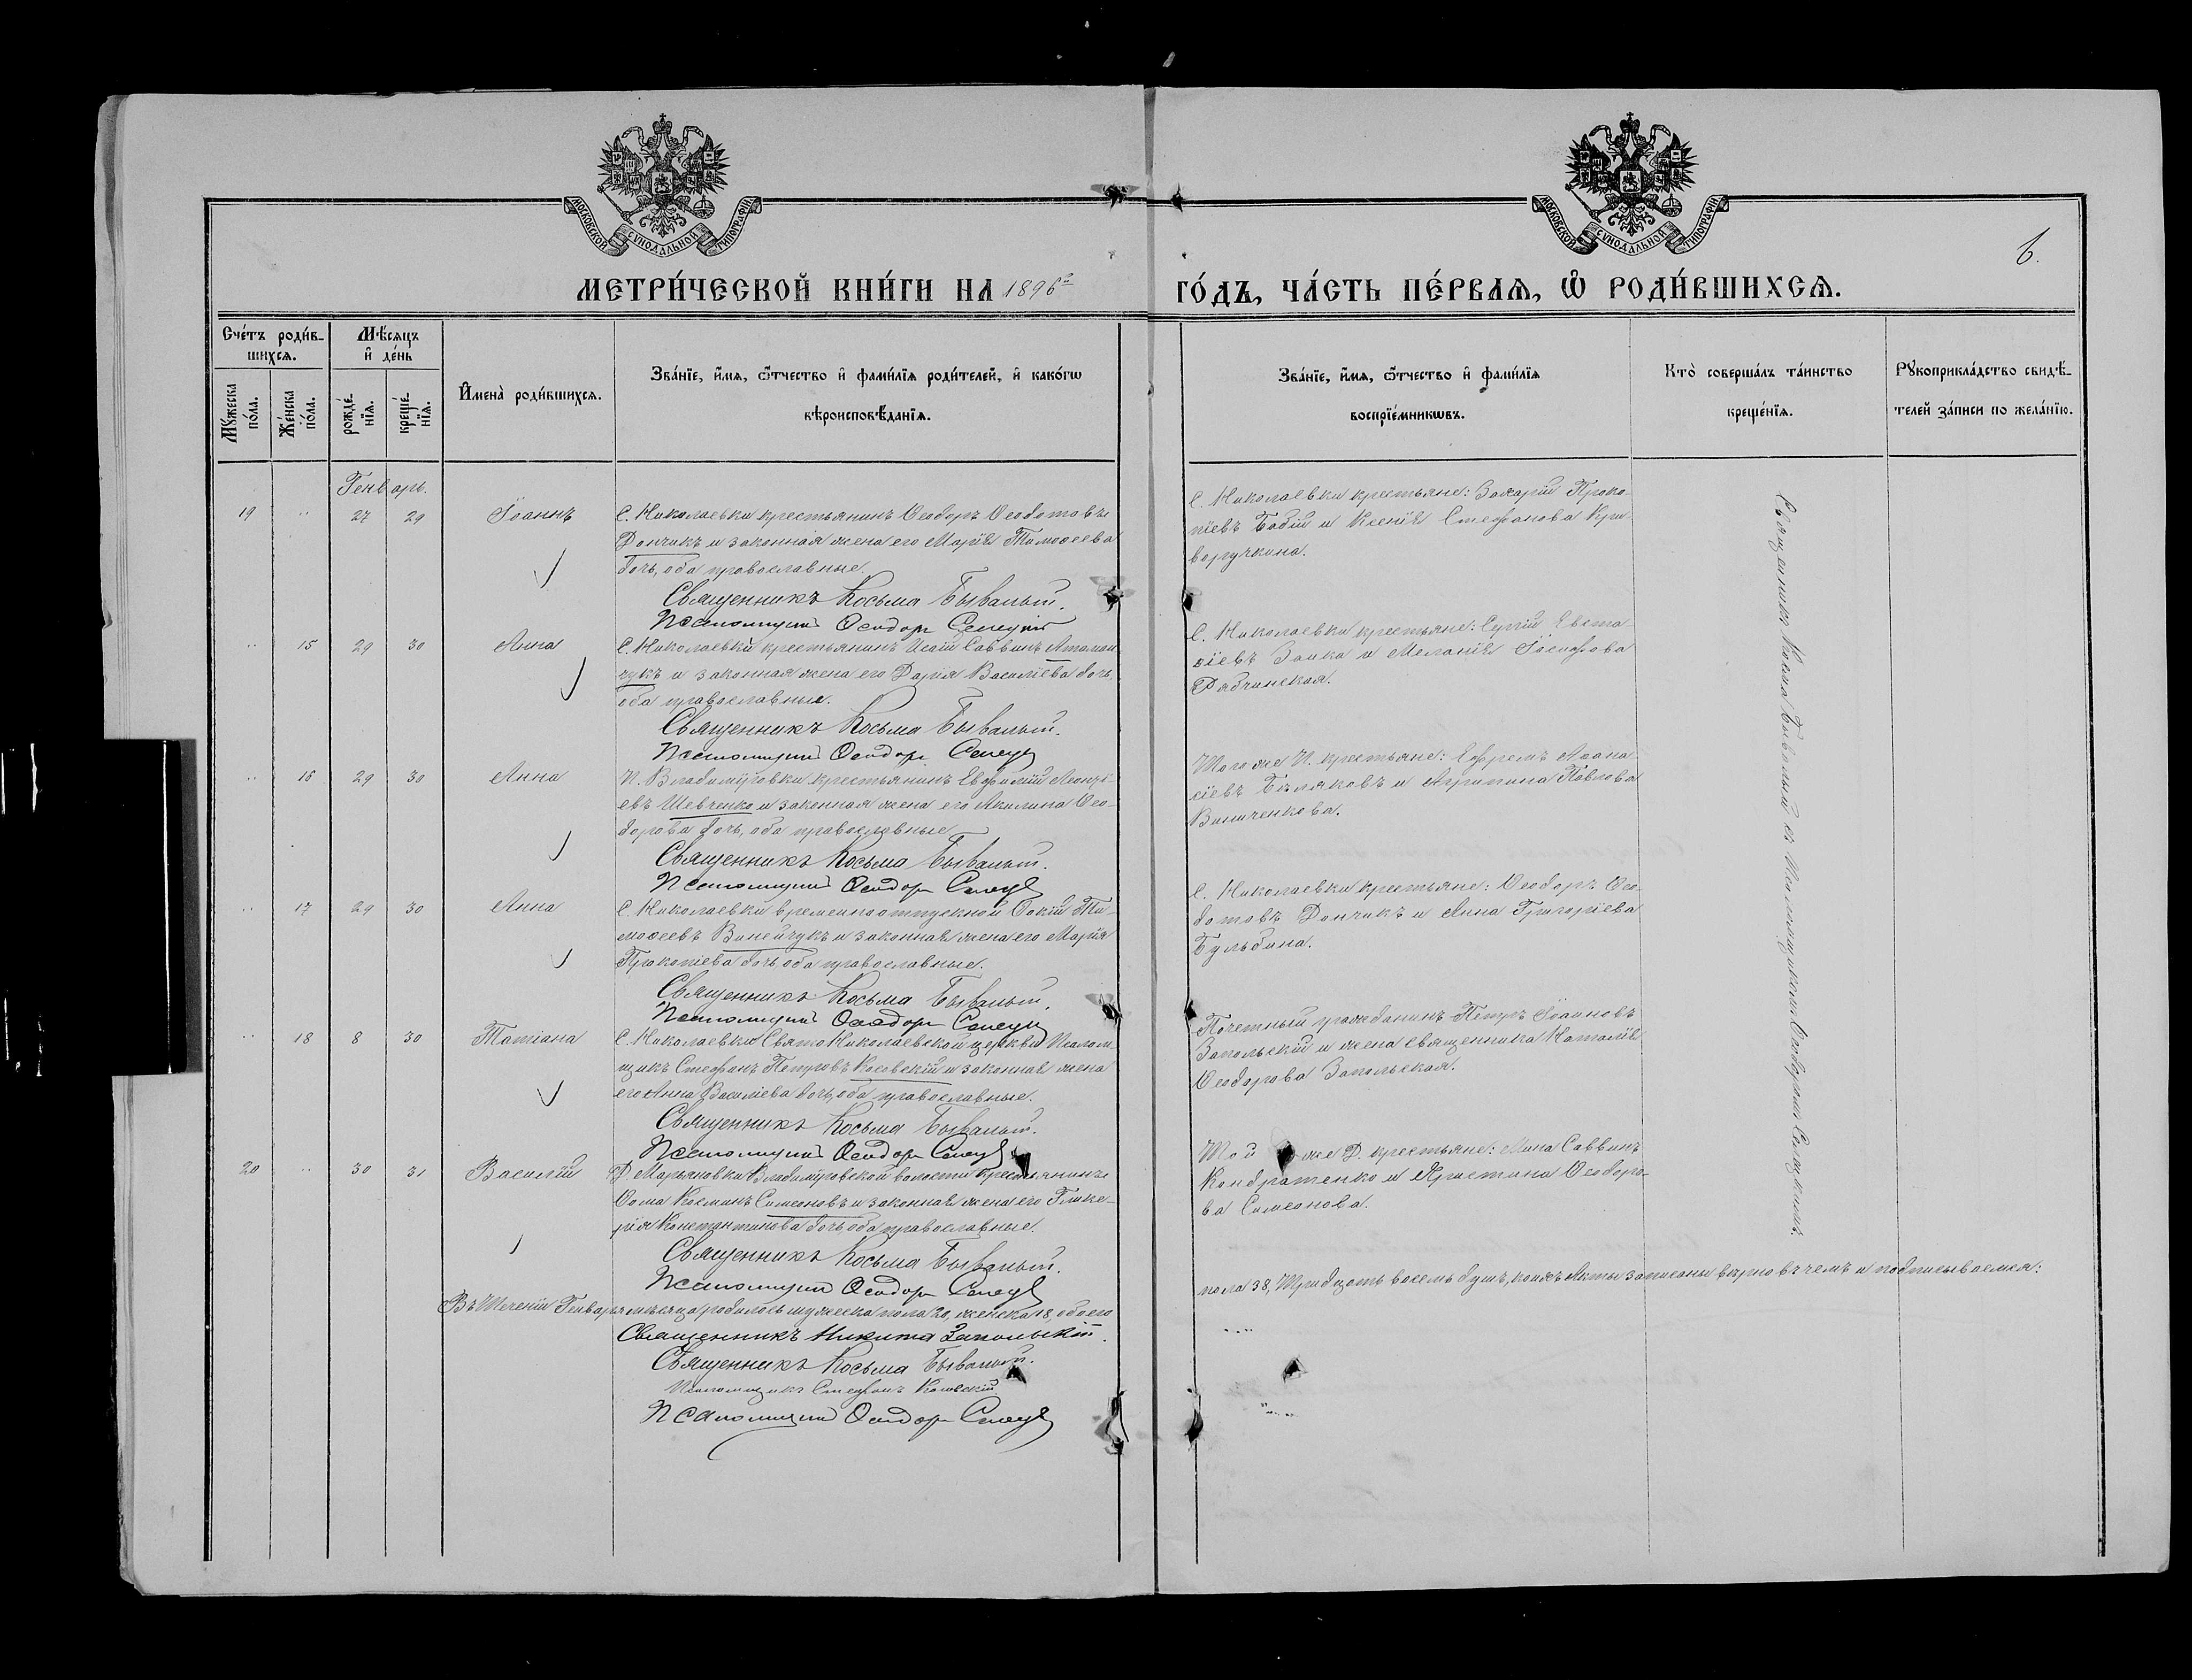 МОСКОВСКОЙ СѴНОДАЛЬНОЙ ТИПОГРАФІИ
МОСКОВСКОЙ СѴНОДАЛЬНОЙ ТИПОГРАФІИ
6.
МЕТРИ́ЧЕСКОЙ КНИ́ГИ НА 1896й ГО́ДЪ, ЧА́СТЬ ПЕ́РВАѦ, Ѡ҆ РОДИ́ВШИХСѦ.
Сче́тъ роди́в-
шихсѧ.
Мѣ́сяцъ
и҆ де́нь
Мꙋ́жеска
по́ла.
Же́нска
по́ла.
рожде́-
нїѧ.
креще́-
нїѧ.
И҆мена̀ роди́вшихсѧ.
Зва́нїе, и҆́мѧ, ѻ҆́тчество и҆ фами́лїѧ роди́телей, и҆ како́гѡ
вѣроисповѣ́данїѧ.
Зва́нїе, и҆́мѧ, ѻ҆́тчество и҆ фами́лїѧ
воспрїе́мникѡвъ.
Кто̀ соверша́лъ та́инство
креще́нїѧ.
Рꙋкоприкла́дство свидѣ́-
телей за́писи по жела́нїю.
Генварь.
19 „ 27 29 Іоаннъ
С. Николаевки крестьянинъ Ѳеодоръ Ѳеодотовъ
Дончикъ и законная жена его Марія Тимоѳеева
дочь, оба православные.
Священникъ Косьма Бывалый.
Псаломщикъ Ѳеодоръ Селецкій
С. Николаевки крестьяне: Захарій Проко-
піевъ Бабій и Ксенія Стефанова Кри-
воручкина.
„ 15 29 30 Анна
С. Николаевки крестьянинъ Исаій Саввинъ Атаман-
чукъ и законная жена его Дарія Василіева дочь,
оба православные.
Священникъ Косьма Бывалый.
Псаломщикъ Ѳеодоръ Селецкій
С. Николаевки крестьяне: Сергій Евста-
фіевъ Заика и Меланія Іосифова
Рябчинская.
„ 16 29 30 Анна
П. Владиміровки крестьянинъ Евфимій Леонті-
евъ Шевченко и законная жена его Акилина Ѳео-
дорова дочь, оба православные
Священникъ Косьма Бывалый.
Псаломщикъ Ѳеодоръ Селецкій
Того же П. крестьяне: Ефремъ Аѳана-
сіевъ Бѣляковъ и Агрипина Павлова
Виниченкова.
„ 17 29 30 Анна
С. Николаевки временноотпускной Ѳокій Ти-
моѳеевъ Винейчукъ и законная жена его Марія
Прокопіева дочь оба православные.
Священникъ Косьма Бывалый.
Псаломщикъ Ѳеодоръ Селецкій
С. Николаевки крестьяне: Ѳеодоръ Ѳео-
дотовъ Дончикъ и Анна Григоріева
Бульбина.
„ 18 8 30 Татіана
С. Николаевки Свято Николаевской церкви Псалом-
щикъ Стефанъ Петровъ Косовскій и законная жена
его Анна Василіева дочь, оба православные.
Священникъ Косьма Бывалый.
Псаломщикъ Ѳеодоръ Селецкій
Почетный гражданинъ Петръ Іоанновъ
Запольскій и жена священника Наталія
Ѳеодорова Запольская.
20 „ 30 31 Василій
Д. Марьяновки Владиміровской волости крестьянинъ
Ѳома Косминъ Симеоновъ и законная жена его Глике-
рія Константинова дочь, оба православные.
Священникъ Косьма Бывалый.
Псаломщикъ Ѳеодоръ Селецкій
Той же Д. крестьяне: Мина Саввинъ
Кондратенко и Христина Ѳеодоро-
ва Симеонова.
Священникъ Косьма Бывалый съ Псаломщикомъ Ѳеодоромъ Селецкимъ.
Въ теченіи Генваря мѣсяца родилось мужеска пола 20, женска 18, обоего
пола 38, тридцать восемь душъ, коихъ Акты записаны вѣрно въ чемъ и подписываемся:
Священникъ Никита Запольскій.
Священникъ Косьма Бывалый.
Псаломщикъ Стефанъ Косовскій
Псаломщикъ Ѳеодоръ Селецкій